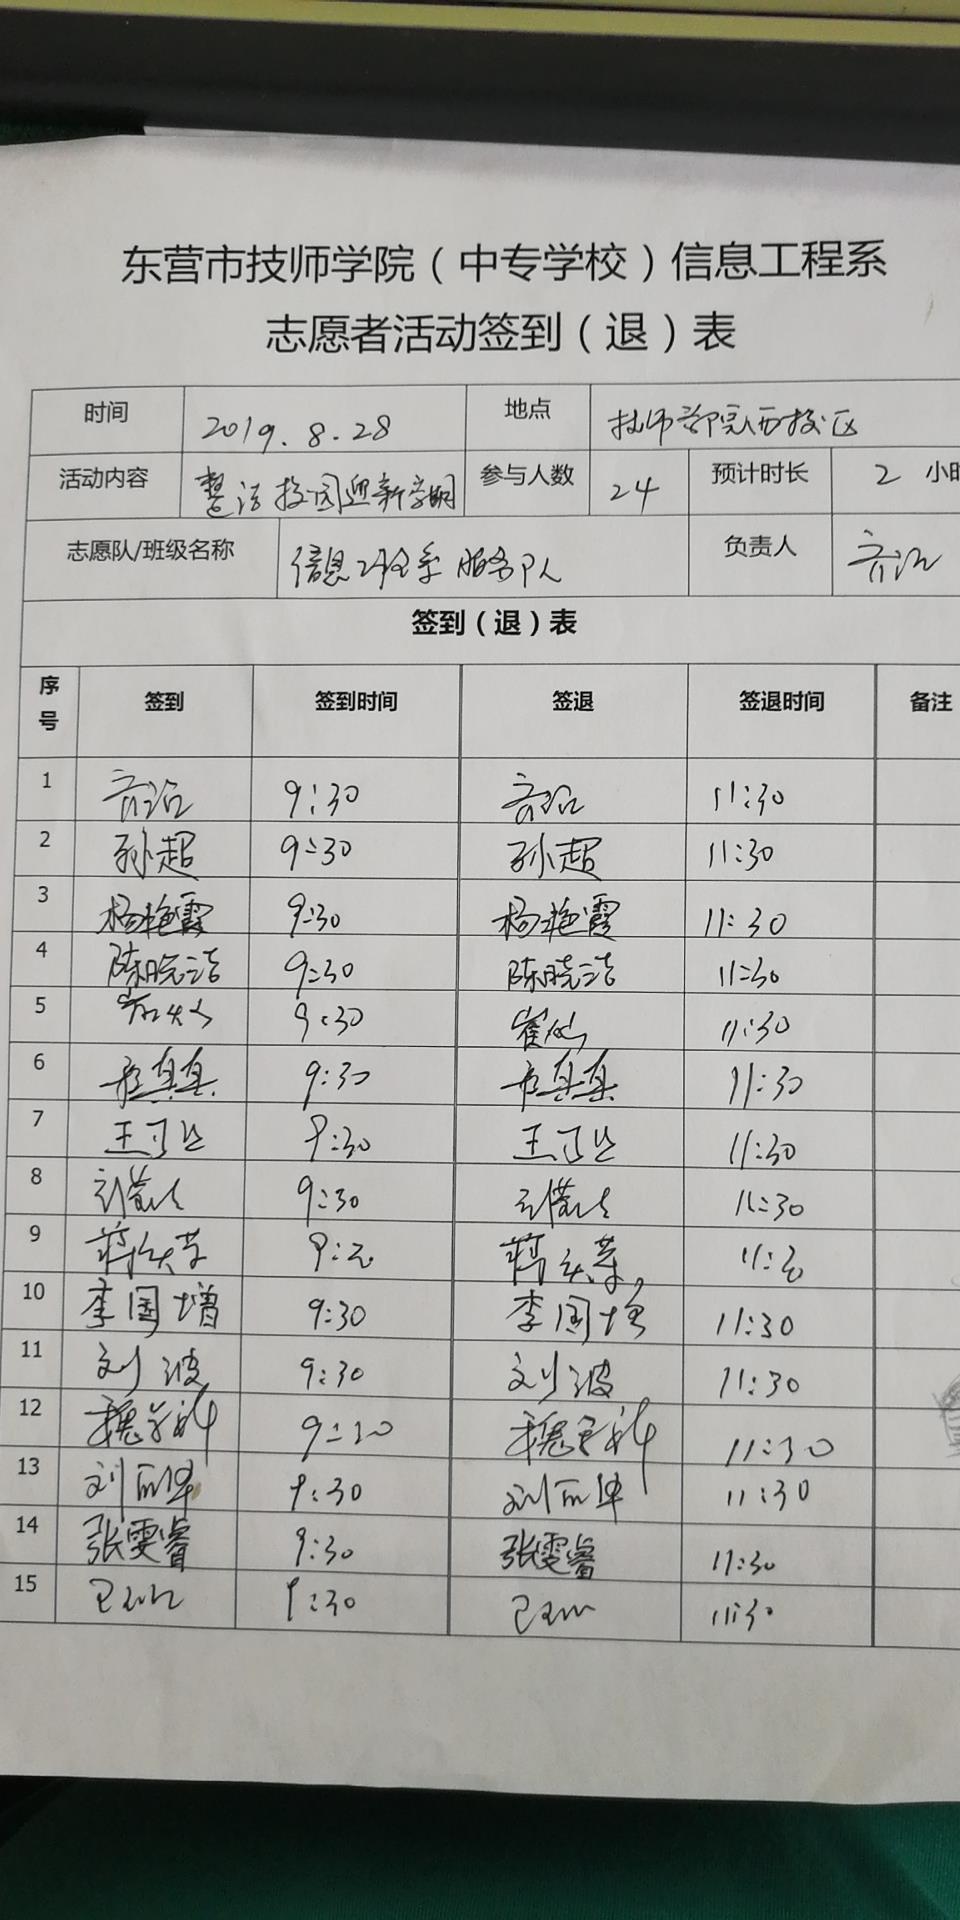 东营市技师学院（中专学校）信息工程系
志愿者活动签到（退）表
时间 2019.8.28 地点 技师学院西校区
活动内容 整洁校园迎新学期 参与人数 24 预计时长 2 小时
志愿队/班级名称 信息工程系服务队 负责人
签到（退）表
序号 签到 签到时间 签退 签退时间 备注
1 9:30 11:30
2 孙超 9:30 孙超 11:30
3 杨艳霞 9:30 杨艳霞 11:30
4 陈晓洁 9:30 陈晓洁 11:30
5 9:30 11:30
6 9:30 11:30
7 9:30 11:30
8 9:30 11:30
9 9:30 11:30
10 李国增 9:30 李国增 11:30
11 刘波 9:30 刘波 11:30
12 9:30 11:30
13 9:30 11:30
14 张雯睿 9:30 张雯睿 11:30
15 9:30 11:30